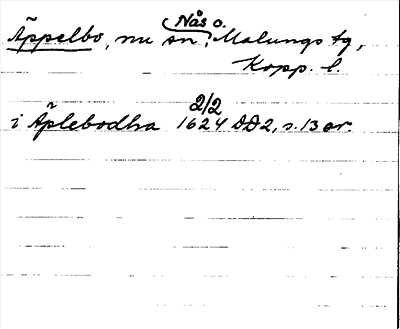 Nås o.
Äppelbo, nu sn i Malungs tg,
Kopp. l.
2/2
i Äplebodha 1624 DD2, s. 13 or.